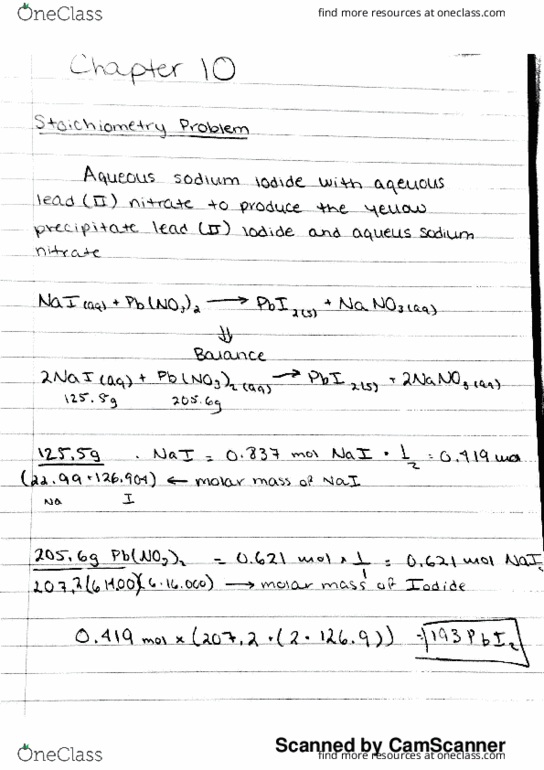 OneClass find more resources at oneclass.com
Chapter 10
Stoichiometry Problem
Aqueous sodium iodide with aqeuous
lead (II) nitrate to produce the yellow
precipitate lead (II) iodide and aqueus sodium
nitrate
NaI (aq) + Pb(NO3)2 → PbI2(s) + NaNO3(aq)
⇓
Balance
2NaI (aq) + Pb(NO3)2 (aq) → PbI2(s) + 2NaNO3(aq)
125.5g 205.6g
125.5g · NaI = 0.837 mol NaI · 1/2 = 0.419 mol
(22.99+126.904) ← molar mass of NaI
Na I
205.6g Pb(NO3)2 = 0.621 mol × 1/1 = 0.621 mol NaI
207.2 → molar mass of Iodide
0.419 mol × (207.2 + (2 · 126.9)) = 193 PbI2
Scanned by CamScanner
OneClass find more resources at oneclass.com